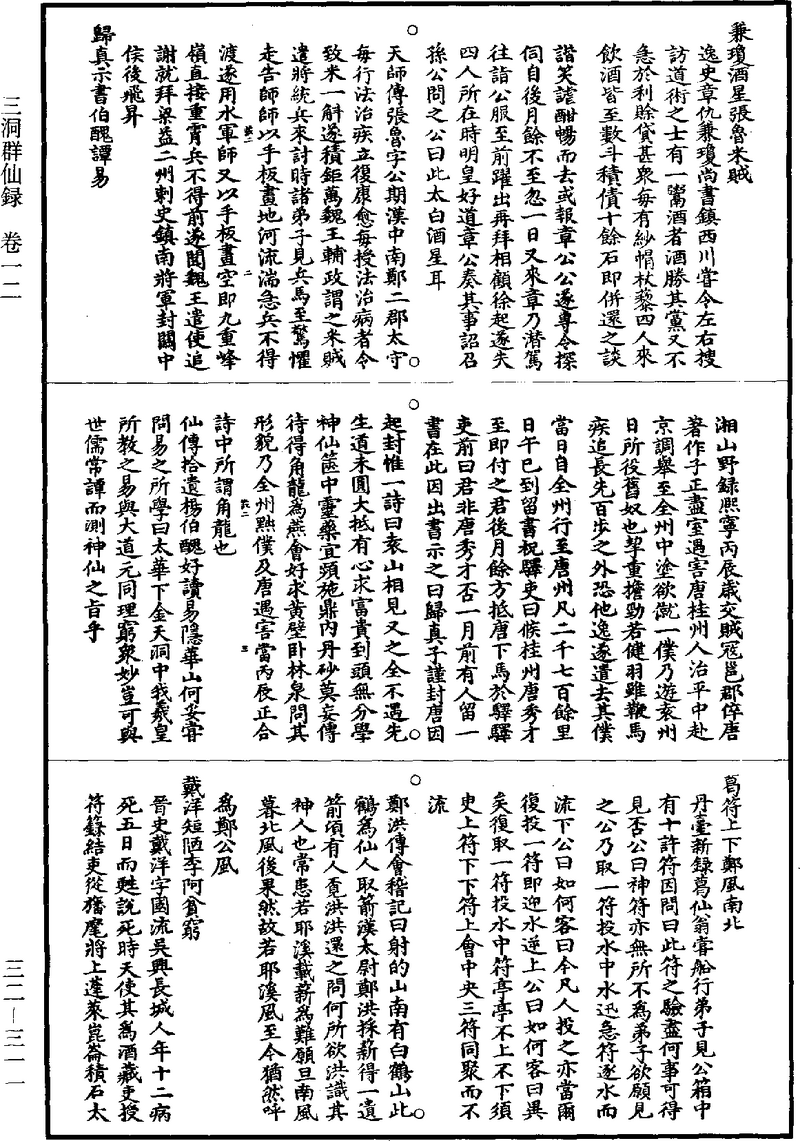 兼瓊酒星張魯米賊
逸史章仇兼瓊尚書鎮西川嘗令左右搜
訪道術之士有一鬻酒者酒勝其黨又不
急於利賒貸甚衆每有紗帽杖藜四人來
飲酒皆至數斗積債十餘石即併還之談
諧笑謔酣暢而去或報章公公遂專令探
伺自後月餘不至忽一日又來章乃潛駕
往詣公服至前躍出再拜相顧徐起遂失
四人所在時明皇好道章公奏其事詔召
孫公問之公曰此太白酒星耳
○
天師傳張魯字公期漢中南鄭二郡太守
每行法治疾立復康愈每授法治病者令
致米一斛遂積鉅萬魏王輔政謂之米賊
遣將統兵來討時諸弟子見兵馬至驚懼
走告師師以手板畫地河流湍急兵不得
渡遂用水軍師又以手板畫空即九重峰
嶺直接重霄兵不得前遂聞魏王遣使追
謝就拜梁益二州刺史鎮南將軍封閬中
侯後飛昇
歸真示書伯醜譚易
湘山野錄熙寧丙辰歲交賊寇邕郡倅唐
著作子正盡室遇害唐桂州人治平中赴
京調舉至全州中塗欲僦一僕乃遊袁州
日所役舊奴也挈重擔勁若健羽雖鞭馬
疾追長先百步之外恐他逸遂遣去其僕
當日自全州行至唐州凡二千七百餘里
日午已到留書祝驛吏曰候桂州唐秀才
至即付之君後月餘方抵唐下馬於驛驛
吏前曰君非唐秀才否一月前有人留一
書在此因出書示之曰歸真子謹封唐因
起封惟一詩曰袁山相見又之全不遇先
生道未圓大抵有心求富貴到頭無分學
神仙篋中靈藥宜頻施鼎內丹砂莫妄傳
待得角龍為燕會好求黃壁卧林泉問其
形貌乃全州㸃僕及唐遇害當丙辰正合
詩中所謂角龍也
○
仙傳拾遺楊伯醜好讀易隱華山何妥嘗
問易之所學曰太華下金天洞中我羲皇
所教之易與大道元同理窮衆妙豈可與
世儒常譚而測神仙之旨乎
葛符上下鄭風南北
丹臺新錄葛仙翁嘗船行弟子見公箱中
有十許符因問曰此符之驗盡何事可得
見否公曰神符亦無所不為弟子欲願見
之公乃取一符投水中水迅急符逐水而
流下公曰如何客曰今凡人投之亦當爾
復投一符即迎水逆上公曰如何客曰異
矣復取一符投水中符亭亭不上不下須
史上符下下符上會中央三符同聚而不
流
○
鄭洪傳會稽記曰射的山南有白鶴山此
鶴為仙人取箭漢太尉鄭洪採薪得一遺
箭頃有人覓洪洪還之問何所欲洪識其
神人也常患若耶溪載薪為難願旦南風
暮北風後果然故若耶溪風至今猶然呼
為鄭公風
戴洋短陋李阿貧窮
晉史戴洋字國流吳興長城人年十二病
死五日而甦說死時天使其為酒藏吏授
符籙結吏從旛麾將上蓬萊崑崙積石太
三洞群仙録　卷一二
三二—三一一